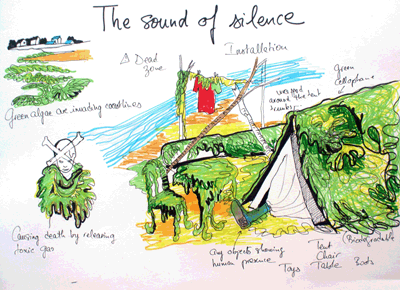 The sound of silence
A Dead
zone
Installation
Green
cellophane
wrapped
around the tent
Green algae are invading coastlines
Causing death by releasing
toxic gas
Any objects showing
human presence
Toys
Tent
Chair
Table
Boots
(Biodegradable